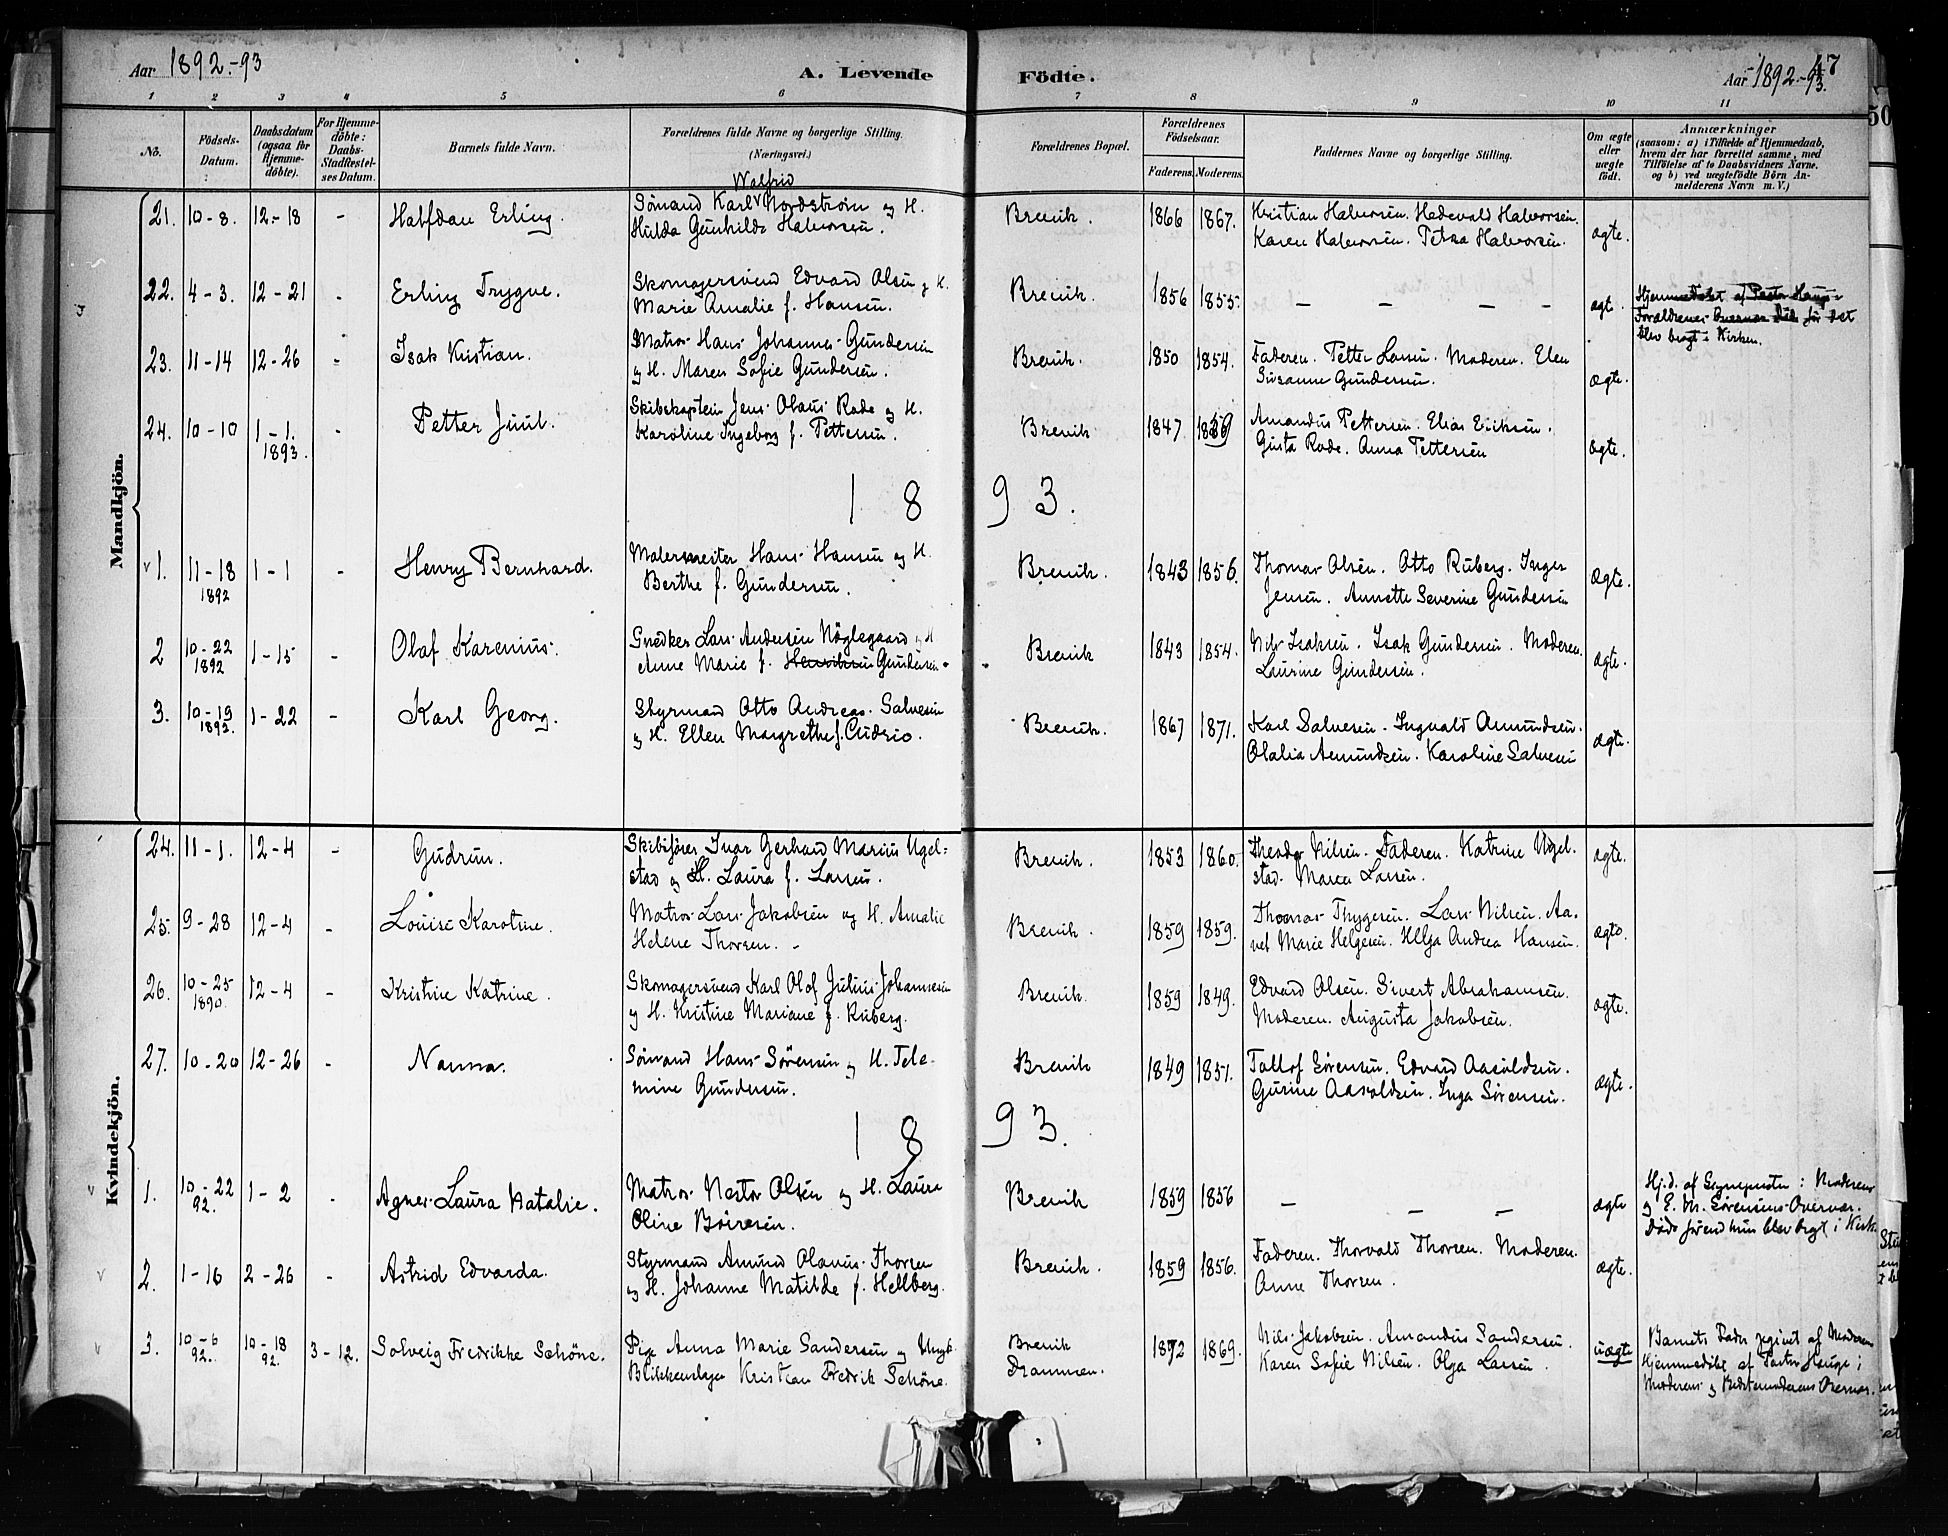 Aar 1892.-93
A. Levende Födte.
Aar 1892.-93.
47
50
1 2 3 4 5 6 7 8 9 10 11
No.
Födsels-Datum.
Daabsdatum (ogsaa for Hjemme-döbte).
For Hjemme-döbte: Daabs-Stadfæstel-ses Datum.
Barnets fulde Navn.
Forældrenes fulde Navne og borgerlige Stilling. (Næringsvei.)
Forældrenes Bopæl.
Forældrenes Födselsaar.
Faderens. Moderens.
Faddernes Navne og borgerlige Stilling.
Om ægte eller uægte födt.
Anmærkninger
(saasom: a) i Tilfælde af Hjemmedaab,
hvem der har forrettet samme, med
Tilföielse af to Daabsvidners Navne.
og b) ved uægtefödte Börn An-
melderens Navn m. V.)
Mandkjön.
Walfrid
21. 10-8. 12-18 - Halfdan Erling. Sömand Karl Nordström og H. Brevik. 1866 1867. Kristian Halvorsen. Hedevald Halvorsen. ægte.
Hulda Gunhilda Halvorsen. Karen Halvorsen. Petra Halvorsen.
22. 4-3. 12-21 - Erling Trygve. Skomagersvend Edvard Olsen og H. Brevik. 1856 1855. - - - - ægt. Hjemmedöbt af Pastor Hauge i
Marie Amalie f. Hansen. Forældrenes Overvær Död før det
blev bragt i Kirken.
23. 11-14 12-26 - Isak Kristian. Matros Hans Johannes Gundersen Brevik. 1850 1854. Faderen. Petter Larsen. Moderen. Elen ægte.
og H. Maren Sofie Gundersen. Susanne Gundersen.
24. 10-10 1-1. 1893. - Petter Juul. Skibskaptein Jens Olaus Rode og H. Brevik 1847 Amandus Pettersen. Elias Eriksen. ægte.
Karoline Ingeborg f. Pettersen. Gusta Rode. Anna Pettersen
1893.
1. 11-18 1892 1-1 - Henry Bernhard. Malermester Hans Hansen og H. Brevik. 1843 1856. Thomas Olsen. Otto Ruberg. Inger ægte.
Berthe f. Gundersen. Jensen. Annette Severine Gundersen
2 10-22 1892 1-15 - Olaf Karenius. Snedker Lars Andersen Nöglegaard og H Brevik 1843 1854. Nils Isaksen. Isak Gundersen. Moderen. ægte.
Anne Marie f. Henriksen Gundersen. Laurine Gundersen.
3. 10-19 1892. 1-22 - Karl Georg. Styrmand Otto Andreas Salvesen Brevik. 1867 1871. Karl Salvesen. Ingvald Amundsen. ægte.
og H. Ellen Margrethe f. Cudrio. Olalia Amundsen. Karoline Salvesen
Kvindekjön.
24. 11-1. 12-4 - Gudrun. Skibsförer Ivar Gerhard Marius Ugel= Brevik. 1853 1860. Theodor Nilsen. Faderen. Katrine Ugel- ægte.
stad og H. Laura f. Larsen. stad. Maren Larsen.
25. 9-28 12-4 - Louise Karoline. Matros Lars Jakobsen og H. Amalie Brevik. 1859 1859. Thomas Thygesen. Lars Nilsen. Aa- ægte.
Helene Thorsen. - vet Marie Helgesen. Helga Andrea Hansen.
26. 10-25 1890. 12-4 - Kristine Katrine. Skomagersvend Karl Olof Julius Johannesen Brevik. 1859 1849. Edvard Olsen. Sivert Abrahamsen. ægte.
og H. Kristine Mariane f. Ruberg. Moderen. Augusta Jakobsen.
27. 10-20 12-26 - Nanna. Sömand Hans Sörensen og H. Tele- Brevik 1849 1851. Tallof Sörensen. Edvard Aasoldsen. ægte.
mine Gundersen. Gurine Aasoldsen. Inga Sörensen.
1893.
1. 10-22 92. 1-2 - Agnes Laura Natalie. Matros Nestor Olsen og H. Laura Brevik 1859 1856 - - - ægte Hj.d. af Moderens
Oline Börresen. og E. M. Sörensens Overvær.
Döde förend hun blev bragt i Kirk.
2. 1-16 2-26 - Astrid Edvarda. Styrmand Amund Olavus Thorsen Brevik. 1859 1856. Faderen. Thorvald Thorsen. Moderen. ægte.
og H. Johanne Matilde f. Hellberg. Anne Thorsen.
3. 10-6 92. 10-18 92. 3-12. Solveig Fredrikke Schöne. Pige Anna Marie Sandersen og Ungk. Brevik 1872 1869. Nils Jakobsen. Amandus Sandersen. uægte Barnets Fader opgivet af Moderen
Blikkenslager Kristian Fredrik Schöne. Drammen. Karen Sofie Nilsen. Olga Larsen. Hjemmedöbt af Pastor Hauge i
Moderens og Bedstemoderens Overvær.